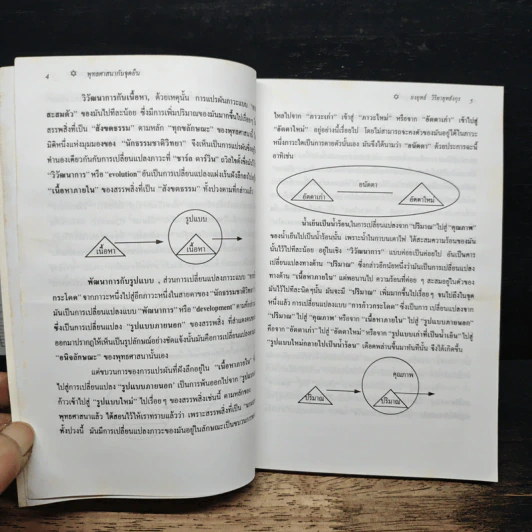 ๔ พุทธศาสนากับจุดยืน
วิวัฒนาการกับเนื้อหา, ด้วยเหตุนั้น การแปรผันภาวะแบบ
สะสมตัว" ของมันไปทีละน้อย ซึ่งมีการเพิ่มปริมาณของมันมากขึ้นไปเรื่อยๆ
สรรพสิ่งที่เป็น "สังขตธรรม" ตามหลัก "ทุกขลักษณะ" ของพุทธศาสนานี้
มิติหนึ่งแห่งมุมมองของ "นักธรรมชาติวิทยา" จึงเห็นเป็นการแปรผัน
ทำนองเดียวกันกับการเปลี่ยนแปลงภาวะที่ "ชาร์ล ดาร์วิน"
"วิวัฒนาการ" หรือ "evolution" อันเป็นการเปลี่ยนแปลงแฝงเร้นที่ฝังลึกอยู่ใน
"เนื้อหาภายใน" ของสรรพสิ่งที่เป็น "สังขตธรรม" ทั้งปวงตามที่กล่าวแล้ว
รูปแบบ
เนื้อหา
เนื้อหา
พัฒนาการกับรูปแบบ , ส่วนการเปลี่ยนแปลงภาวะแบบ
กระโดด" จากภาวะหนึ่งไปสู่อีกภาวะหนึ่งในสายตาของ "นักธรรมชาติวิทยา"
มันเป็นการเปลี่ยนแปลงแบบ "พัฒนาการ" หรือ "development"
ซึ่งเป็นการเปลี่ยน "รูปแบบภายนอก" ของสรรพสิ่ง ที่สำแดงตน
ออกมาปรากฏให้เห็นเป็นรูปลักษณ์อย่างชัดแจ้งนั้นมันคือการเปลี่ยนแปลง
"อนิจลักษณะ" ของพุทธศาสนานั่นเอง
แต่ขบวนการของการแปรผันที่ฝังลึกอยู่ใน "เนื้อหาภายใน"
ไปสู่การเปลี่ยนแปลง "รูปแบบภายนอก" เป็นการพ้นออกไปจาก
ก้าวเข้าไปสู่ "รูปแบบใหม่" ไปเรื่อยๆ ของสรรพสิ่งเช่นนี้ ตามหลักของ
พุทธศาสนาแล้ว ได้สอนไว้ให้เราทราบแล้วว่า เพราะสรรพสิ่งที่เป็น
ทั้งปวงนี้ มันมีการเปลี่ยนแปลงภาวะของมันอยู่ในลักษณะเป็นขบวนการ
ยงยุทธ์ วิริยายุทธังกุร ๕
ไหลไปจาก "ภาวะเก่า" เข้าสู่ "ภาวะใหม่" หรือจาก "อัตตาเก่า" เข้าไปสู่
"อัตตาใหม่" อยู่อย่างนี้เรื่อยไป โดยไม่สามารถจะคงตัวของมันอยู่ได้ในภาวะ
หนึ่งภาวะใดเป็นการตายตัวนั้นเอง มันจึงได้นามว่า "อนัตตา" ด้วยประการฉะนี้
อาทิเช่น
อนัตตา
อัตตาเก่า
อัตตาใหม่
น้ำเย็นเป็นน้ำร้อน,ในการเปลี่ยนแปลงจาก "ปริมาณ" ไปสู่ "คุณภาพ"
ของน้ำเย็นไปเป็นน้ำร้อนนั้น เพราะน้ำในกาบนเตาไฟ ได้สะสมความร้อนของมัน
นั้นไว้ไปทีละน้อยๆ อยู่ในเชิง "วิวัฒนาการ" แบบค่อยเป็นค่อยไป อันเป็นการ
เปลี่ยนแปลงทางด้าน "ปริมาณ" ซึ่งกล่าวอีกนัยหนึ่งว่ามันเป็นการเปลี่ยนแปลง
ทางด้าน "เนื้อหาภายใน" แต่พอนานไป ความร้อนที่ค่อย ๆ สะสมอยู่ในตัวของ
มันไว้ไปทีละนิดๆนั้น มันจะมี "ปริมาณ" เพิ่มมากขึ้นไปเรื่อยๆ จนไปถึงในจุด
หนึ่งแล้ว การเปลี่ยนแปลงแบบ "การก้าวกระโดด" จึงเป็นการเปลี่ยนแปลงจาก
"ปริมาณ" ไปสู่ "คุณภาพ" หรือจาก "เนื้อหาภายใน" ไปสู่ "รูปแบบภายนอก"
คือจาก "อัตตาเก่า" ไปสู่ "อัตตาใหม่" หรือจาก "รูปแบบเก่าที่เป็นน้ำเย็น" ไปสู่
"รูปแบบใหม่กลายไปเป็นน้ำร้อน" เดือดพล่านขึ้นมาทันทีนั้น จึงได้เกิดขึ้น
คุณภาพ
ปริมาณ
ปริมาณ